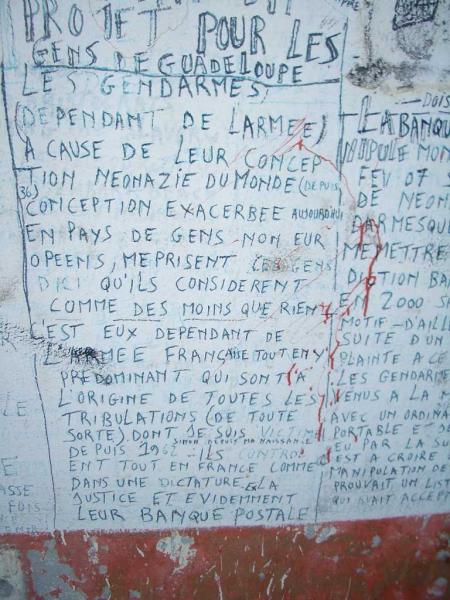 PROJET POUR LES
GENS DE GUADELOUPE
LES GENDARMES,
(DEPENDANT DE L'ARMEE)
A CAUSE DE LEUR CONCEP
TION NEONAZIE DU MONDE (DEPUIS
36) CONCEPTION EXACERBEE AUJOURD'HUI
EN PAYS DE GENS NON EUR
OPEENS, MEPRISENT LES GENS
D'ICI QU'ILS CONSIDERENT
COMME DES MOINS QUE RIEN
C'EST EUX DEPENDANT DE
L'ARMEE FRANCAISE TOUT EN Y
PREDOMINANT QUI SONT A
L'ORIGINE DE TOUTES LES
TRIBULATIONS (DE TOUTE
SORTE) DONT JE SUIS VICTIME
SINON DEPUIS MA NAISSANCE
DEPUIS 1962 ILS CONTROL
ENT TOUT EN FRANCE COMME
DANS UNE DICTATURE, LA
JUSTICE ET EVIDEMMENT
LEUR BANQUE POSTALE
DOIS
LA BANQU
NIPULE MON
FEV 07
DE NEON
DARMESQUE
ME METTRE
DICTION BA
EN 2000 S
MOTIF D'AILLE
SUITE D'UN
PLAINTE A CE
LES GENDARME
VENUS A LA M
AVEC UN ORDINA
PORTABLE ET DE
EU PAR LA SU
C'EST A CROIRE
MANIPULATION DE
PROUVAIT UN LIST
QUI AVAIT ACCEP
LE
E
ASSE
FOIS